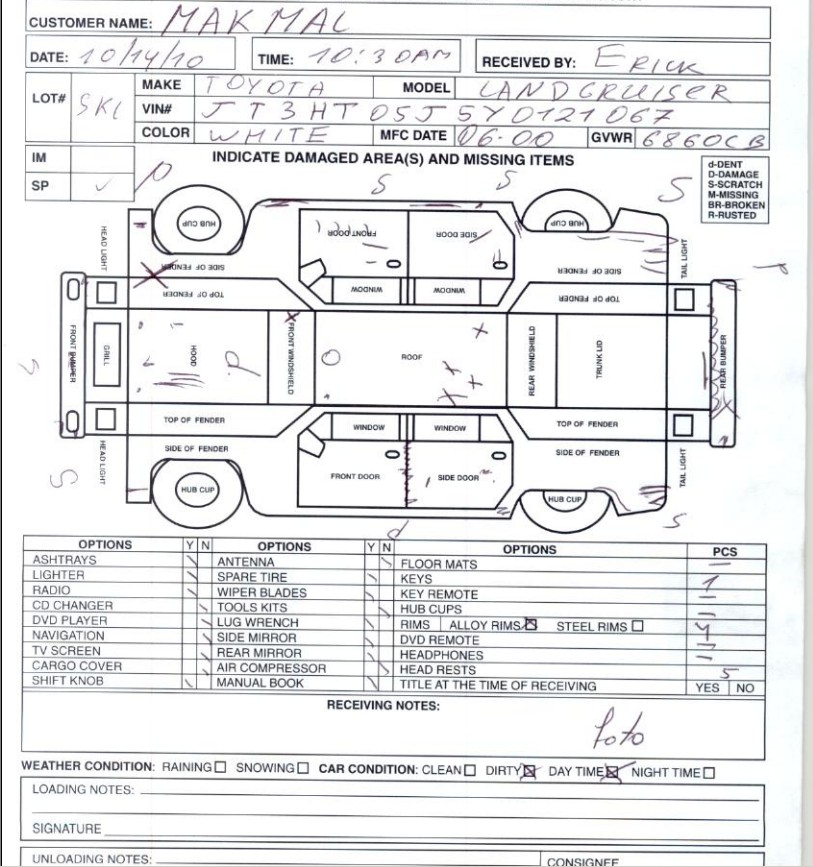 CUSTOMER NAME: MAK MAL
DATE: 10/14/10 TIME: 10:30AM RECEIVED BY: ERICK
LOT# SKL MAKE TOYOTA MODEL LANDCRUISER
VIN# JT3HT05J5Y0121067
COLOR WHITE MFC DATE 06-00 GVWR 6860CB
IM
SP ✓
INDICATE DAMAGED AREA(S) AND MISSING ITEMS
d-DENT
D-DAMAGE
S-SCRATCH
M-MISSING
BR-BROKEN
R-RUSTED
S S S
HUB CUP HUB CUP
HEAD LIGHT SIDE OF FENDER FRONT DOOR SIDE DOOR SIDE OF FENDER TAIL LIGHT
TOP OF FENDER WINDOW WINDOW TOP OF FENDER
FRONT BUMPER GRILL HOOD d FRONT WINDSHIELD ROOF REAR WINDSHIELD TRUNK LID REAR BUMPER
TOP OF FENDER WINDOW WINDOW TOP OF FENDER
HEAD LIGHT SIDE OF FENDER FRONT DOOR SIDE DOOR SIDE OF FENDER TAIL LIGHT
S HUB CUP HUB CUP S
d
OPTIONS Y N OPTIONS Y N OPTIONS PCS
ASHTRAYS ANTENNA FLOOR MATS —
LIGHTER SPARE TIRE KEYS 1
RADIO WIPER BLADES KEY REMOTE —
CD CHANGER TOOLS KITS HUB CUPS —
DVD PLAYER LUG WRENCH RIMS ALLOY RIMS ☒ STEEL RIMS ☐ 4
NAVIGATION SIDE MIRROR DVD REMOTE —
TV SCREEN REAR MIRROR HEADPHONES —
CARGO COVER AIR COMPRESSOR HEAD RESTS 5
SHIFT KNOB MANUAL BOOK TITLE AT THE TIME OF RECEIVING YES NO
RECEIVING NOTES:
foto
WEATHER CONDITION: RAINING ☐ SNOWING ☐ CAR CONDITION: CLEAN ☐ DIRTY ☒ DAY TIME ☒ NIGHT TIME ☐
LOADING NOTES:
SIGNATURE
UNLOADING NOTES: CONSIGNEE